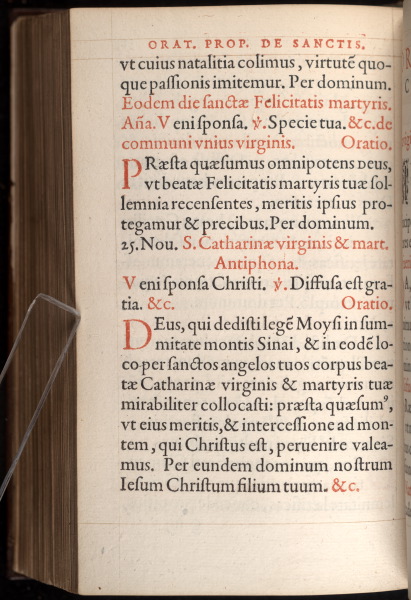 ORAT. PROP. DE SANCTIS.
vt cuius natalitia colimus, virtutē quo-
que paſſionis imitemur. Per dominum.
Eodem die ſanctæ Felicitatis martyris.
Aña. Veni ſponſa. ℣. Specie tua. &c. de
communi vnius virginis. Oratio.
PRæſta quæſumus omnipotens DEUS,
vt beatæ Felicitatis martyris tuæ ſol-
lemnia recenſentes, meritis ipſius pro-
tegamur & precibus. Per dominum.
25. Nou. S. Catharinæ virginis & mart.
Antiphona.
Veni ſponſa Chriſti. ℣. Diffuſa eſt gra-
tia. &c. Oratio.
DEus, qui dediſti legē Moyſi in ſum-
mitate montis Sinai, & in eodē lo-
co per ſanctos angelos tuos corpus bea-
tæ Catharinæ virginis & martyris tuæ
mirabiliter collocaſti: præſta quæſumꝰ,
vt eius meritis, & interceſſione ad mon-
tem, qui Chriſtus eſt, peruenire valea-
mus. Per eundem dominum noſtrum
Ieſum Chriſtum filium tuum. &c.